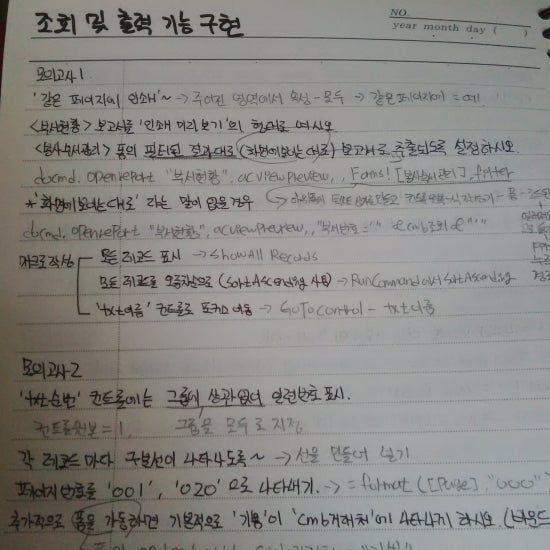 조회 및 출력 기능 구현
NO.
year month day ( )
모의고사1
'같은 페이지에 인쇄'~ → 주어진 영역에서 속성-모두 → 같은페이지에 = 예
<봉사현황> 보고서를 '인쇄 미리 보기'의 형태로 여시오
<봉사부서관리> 폼의 필터된 결과대로 (화면에 보이는 대로) 보고서로 추출되도록 설정하시오
docmd. openReport "봉사현황", acviewPreview, , Forms! [봉사부서관리].filter
* '화면에 보이는대로' 라는 말이 없을 경우
docmd. openReport "봉사현황", acviewPreview, , "봉사번호 = '" & cmb조회 & "'"
매크로 작성
모든 레코드 표시 → showAll Records
모든 레코드를 오름차순으로 (SortAscending 사용) → RunCommand에서 SortAscending
'txt이름' 컨트롤로 포커스 이동 → GoTocontrol - txt이름
모의고사2
'txt순번' 컨트롤에는 그룹에 상관없이 일련번호 표시.
컨트롤원본 = 1, 그룹을 모두로 지정
각 레코드 마다 구분선이 나타나도록 ~ → 선을 만들어 넣기
페이지 번호를 '001', '020' 으로 나타내기. → = format ([Page], "000")
추가적으로 폼을 가동하면 기본적으로 '기용'이 'cmb거래처'에 나타나게 하시오.